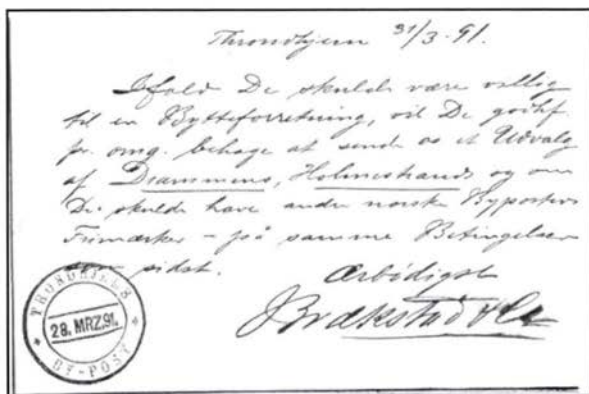 Throndhjem 31/3-91.
Ifald De skulde være villig
til en Bytteforretning, vil De godhf.
pr. omg. behage at sende os et Udvalg
af Drammens, Holmestrands og om
De skulde have andre norske Byposters
Frimærker - på samme Betingelser
sidst.
Ærbødigst
Brækstad & Co
TRONDHJEMS
28. MRZ.91.
BY-POST